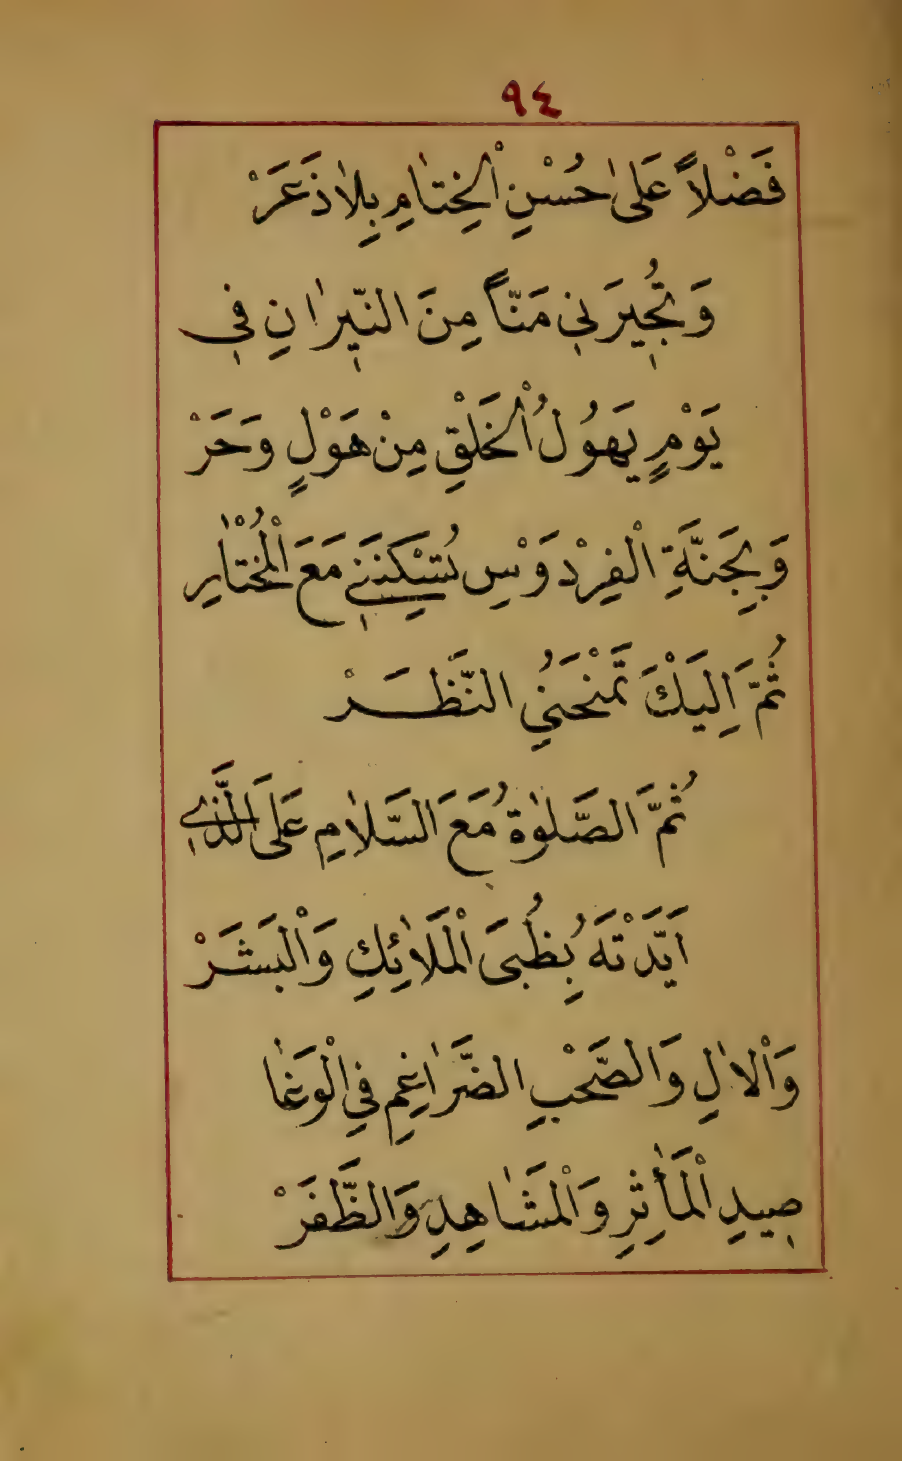 ٩٤
فَضْلاً عَلىٰ حُسْنِ الْخِتٰامِ بِلاٰ ذَعَرْ
وَتُجِيرَنِي مَنّاً مِنَ النّيرٰانِ فِي
يَوْمٍ يَهُولُ الْخَلْقِ مِنْ هَوْلٍ وَحَرْ
وَبِجَنَّةِ الْفِرْدَوْسِ تُسْكِنَنِي مَعَ الْمُخْتٰارِ
ثُمَّ اِلَيْكَ تَمْنَحَنِي النَّظَرْ
ثُمَّ الصَّلوٰةُ مَعَ السَّلاٰمِ عَلَى الَّذِي
اَيَّدْتَهُ بِظُبَى الْمَلَائِكِ وَالْبَشَرْ
وَاْلاٰلِ وَالصَّحْبِ الضَّرٰاغِمِ فِي الْوَغٰا
صِيدِ الْمَأٰثِرِ وَالْمَشٰاهِدِ وَالظَّفَرْ